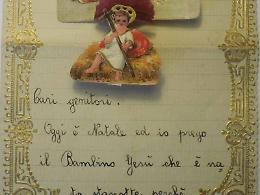 Cari genitori.
Oggi è Natale ed io prego
il Bambino Gesù che è na
to stanotte perchè